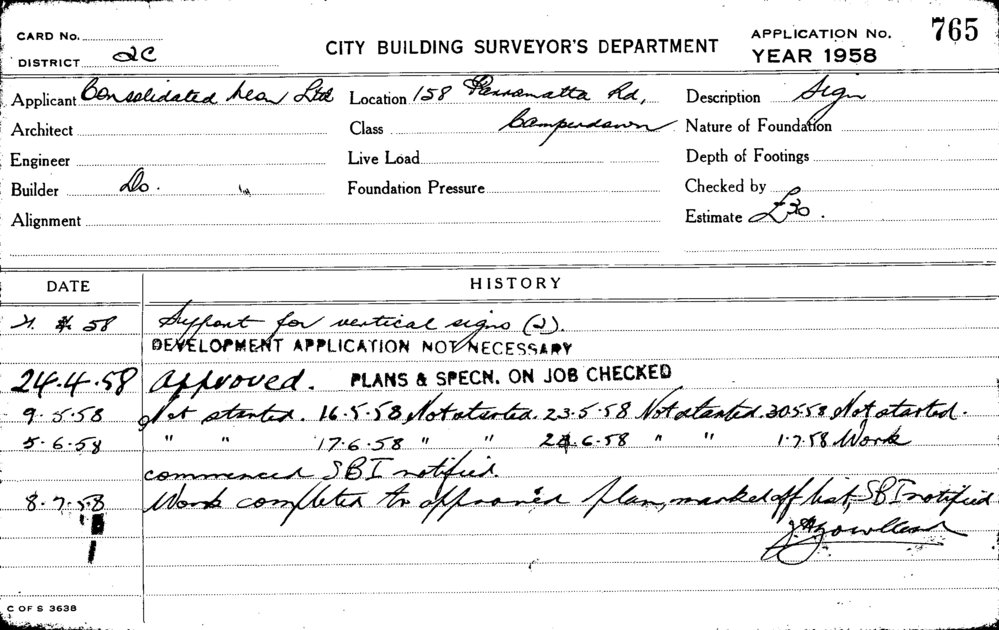 CARD No. CITY BUILDING SURVEYOR'S DEPARTMENT APPLICATION No. 765
DISTRICT 2C YEAR 1958
Applicant Consolidated Neon Ltd Location 158 Parramatta Rd, Description Sign
Architect Class Camperdown Nature of Foundation
Engineer Live Load Depth of Footings
Builder Do. Foundation Pressure Checked by
Alignment Estimate £30.
DATE HISTORY
58 Support for vertical signs (2).
DEVELOPMENT APPLICATION NOT NECESSARY
24.4.58 Approved. PLANS & SPECN. ON JOB CHECKED
9.5.58 Not started. 16.5.58 Not started. 23.5.58 Not started. 30.5.58 Not started.
5.6.58 " " 17.6.58 " " 24.6.58 " " 1.7.58 Work
commenced SBI notified.
8.7.58 Work completed to approved plan, marked off list, SBI notified
C OF S 3638